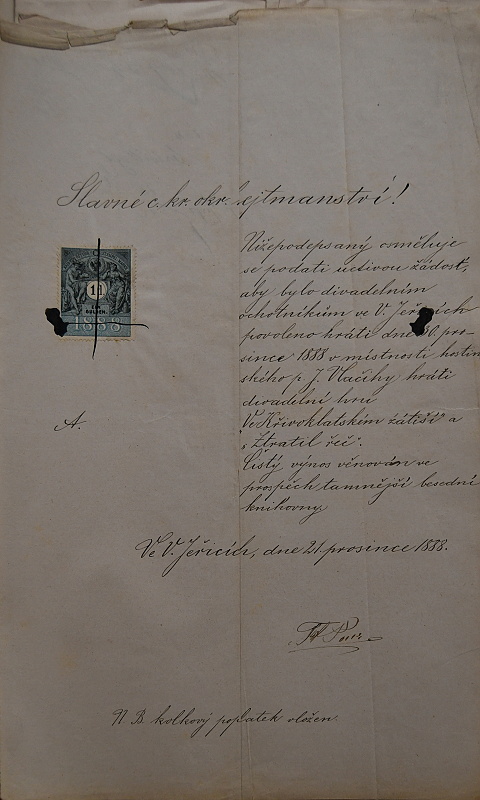 Slavné c. kr. okr. hejtmanství!
1
GULDEN
1888
Nížepodepsaný osměluje
se podati uctivou žádost,
aby bylo divadelním
ochotníkům ve V. Jeřicích
povoleno hráti dne 30. pro-
since 1888 v místnosti hostin
ského p. J. Vlačihy hráti
divadelní hru
"Ve Křivoklatském zátiší" a
"Ztratil řeč".
Čistý výnos věnován ve
prospěch tamnější besední
knihovny.
A.
Ve V. Jeřicích, dne 21 prosince 1888.
N B. kolkový poplatek vložen.